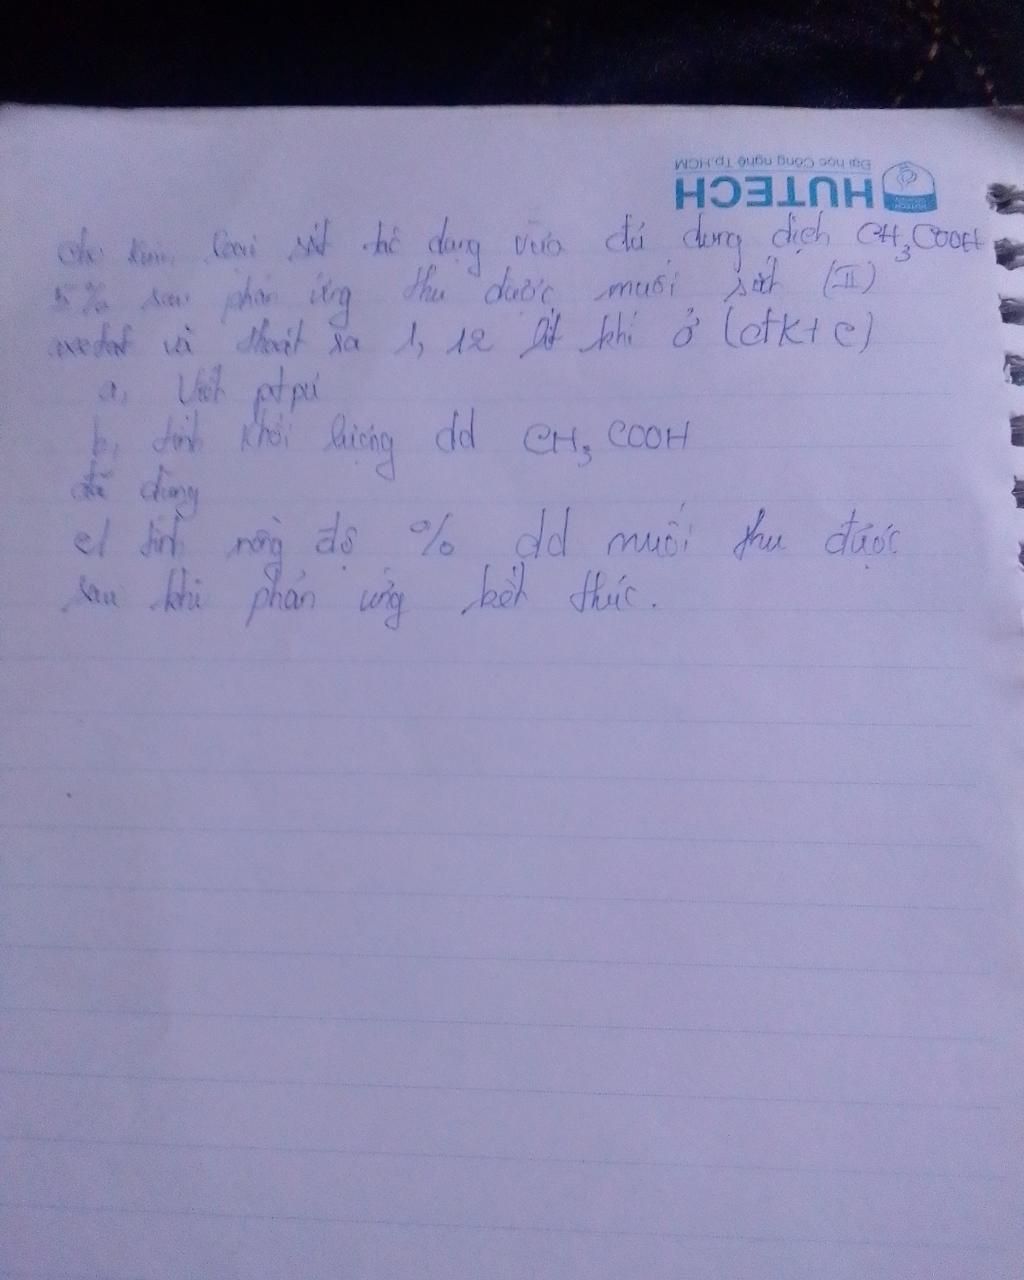 Đại học Công nghệ Tp.HCM
HUTECH
cho kim loại sắt tác dụng vừa đủ dung dịch CH3COOH
5% sau phản ứng thu được muối sắt (II)
axetat và thoát ra 1,12 lít khí ở (đktc)
a, Viết ptpứ
b, tính khối lượng dd CH3COOH
đã dùng
c/ tính nồng độ % dd muối thu được
sau khi phản ứng kết thúc.